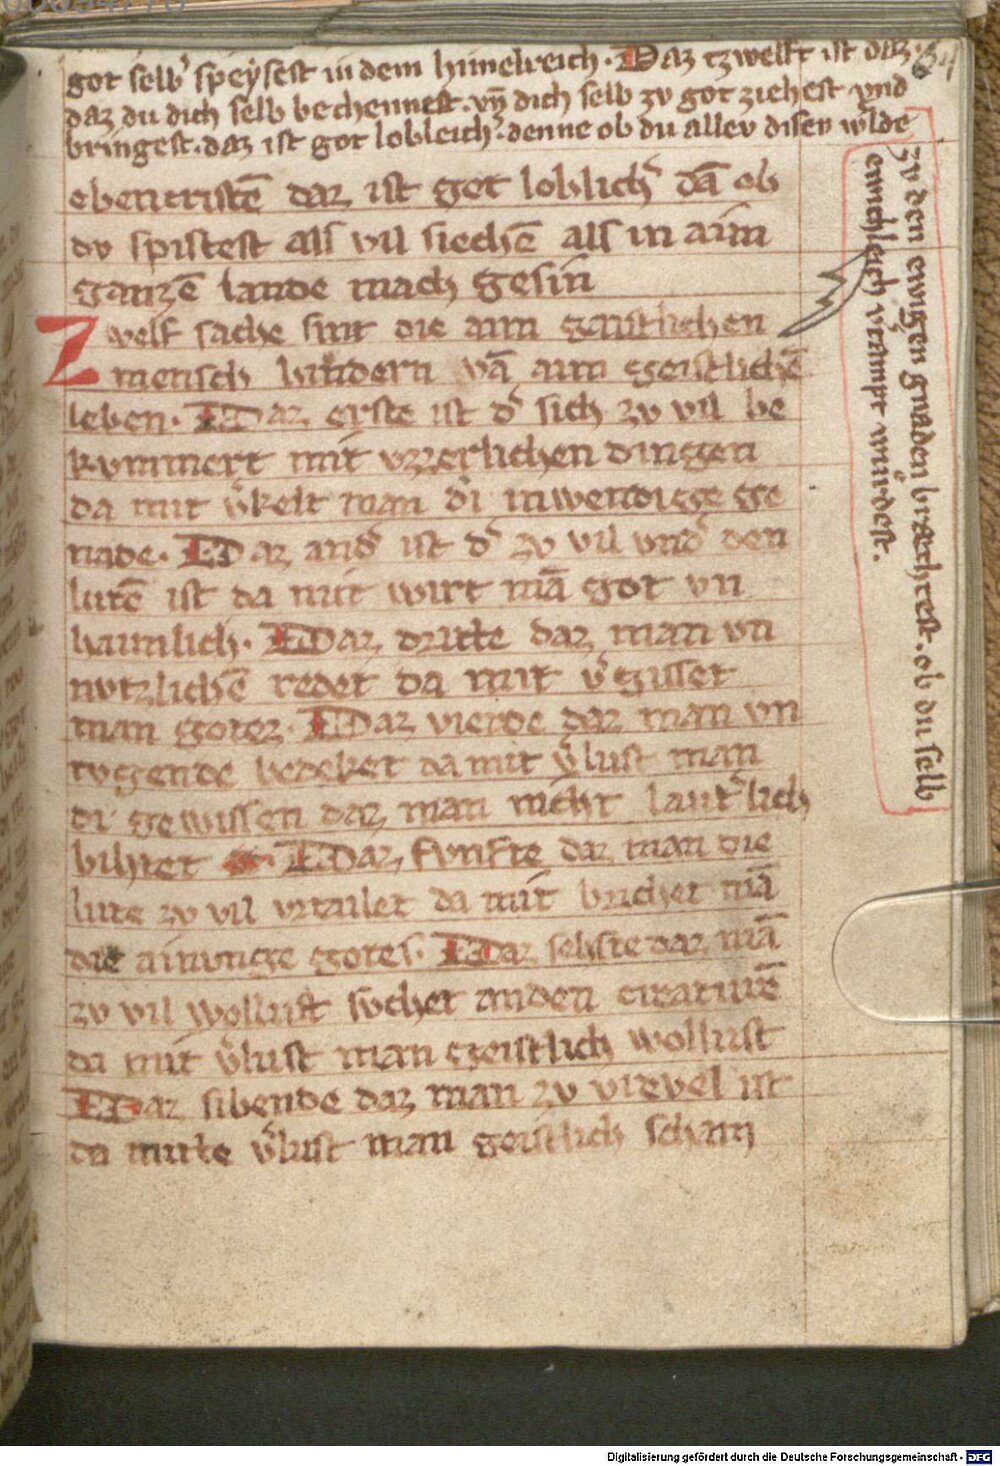 got selb speysest in dem himelreich. Daz tzwelft ist daz.
daz du dich selb bechennest. vn̄ dich selb zv got ziehest vnd
bringest. daz ist got lobleich. denne ob du allev disev
ebencristē daz ist got loblich dā ob
dv spistest alſ vil siechē alſ in aim
ganzē lande mach gesin
Zwelf sache sint die aim gaistlichen
mensch hindern vā aim geistlichē
leben. Daz erste ist d sich zv vil be
kvmmert mit vzzerlichen dingen
da mit v̄kelt man di inwendige ge
nade. Daz and ist d zv vil vnd den
lutē ist da mit wirt mā got vn
haimlich. Daz dritte daz man vn
nvtzlichē redet da mit v̄gisset
man gotez. Daz vierde daz man vn
tvgende bedeket da mit v̄lust man
di gewissen daz man nicht laut̄lich
bihtet Daz fvnfte daz man die
lute zv vil vrtailet da mit brichet mā
die ainvnge gotes. Daz sehste daz mā
zv vil wollust svchet an den creaturē
da mit v̄lust man geistlich wollust
Daz sibende daz man zv vrevel ist
da mitte v̄lust man geistlich scham
zv den ewigen gnaden bræchtest. ob du selb
ewichleich v̄tampt wu̇rdest.
Digitalisierung gefördert durch die Deutsche Forschungsgemeinschaft - DFG